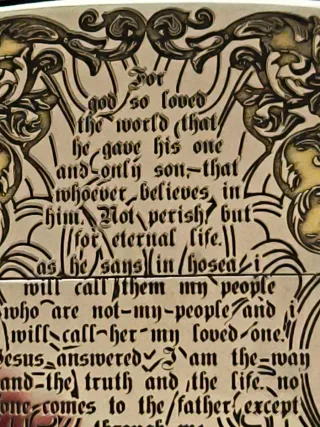 For
god so loved
the world that
he gave his one
and only son, that
whoever believes in
him. Not perish but
for eternal life.
as he says in hosea i
will call them my people
who are not-my-people and i
will call her my loved one.
Jesus answered I am the way
and the truth and the life. no
one comes to the father except
through me